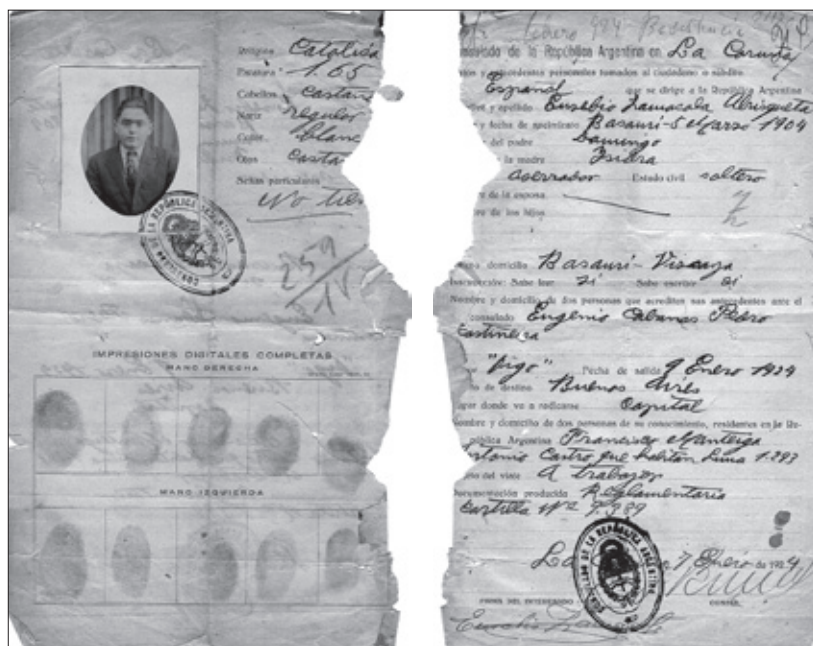 Religión Católica
Estatura 1.65
Cabellos Castañ
Nariz regular
Color blanc
Ojos Casta
Señas particulares
No tien
CONSULADO DE LA REPÚBLICA ARGENTINA
259
IMPRESIONES DIGITALES COMPLETAS
MANO DERECHA
MANO IZQUIERDA
Febrero 924 Residencia
nsulado de la República Argentina en La Coruña
tos y antecedentes personales tomados al ciudadano o súbdito
Español que se dirige a la República Argentina
bre y apellido Eusebio Lamacola Abrisqueta
y fecha de nacimiento Basauri-5 Marzo 1904
del padre Domingo
la madre Isidra
aserrador Estado civil soltero
re de la esposa
re de los hijos
domicilio Basauri-Viscaya
Instrucción: Sabe leer si Sabe escribir si
Nombre y domicilio de dos personas que acrediten sus antecedentes ante el
consulado Eugenio Cabanas Pedro
Castiñeira
"Vigo" Fecha de salida 9 Enero 1924
to de destino Buenos Aires
ugar donde va a radicarse Capital
Nombre y domicilio de dos personas de su conocimiento, residentes en la Re-
pública Argentina Francisco Manteiga
Antonio Castro que habitan Lima 1.293
to del viaje A trabajar
Documentación producida Reglamentaria
Cartilla Nº 9.389
La 7 Enero de 1924
CONSULADO DE LA REPÚBLICA ARGENTINA
FIRMA DEL INTERESADO CONSUL
Eusebio